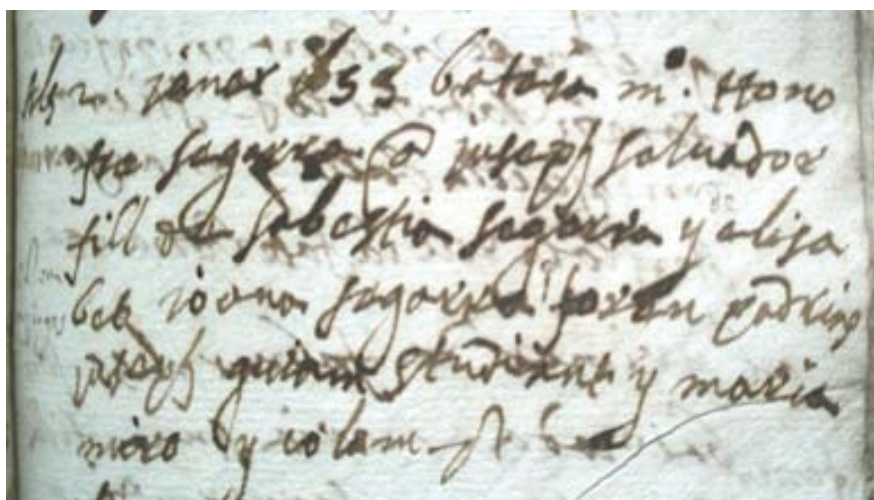 janer 1655 bateja m. Hono
fre segarra a juseph saluador
fill de sebastia segarra y elisa
bet joana segarra foren padrins
juseph guiam studiant y maria
miro y